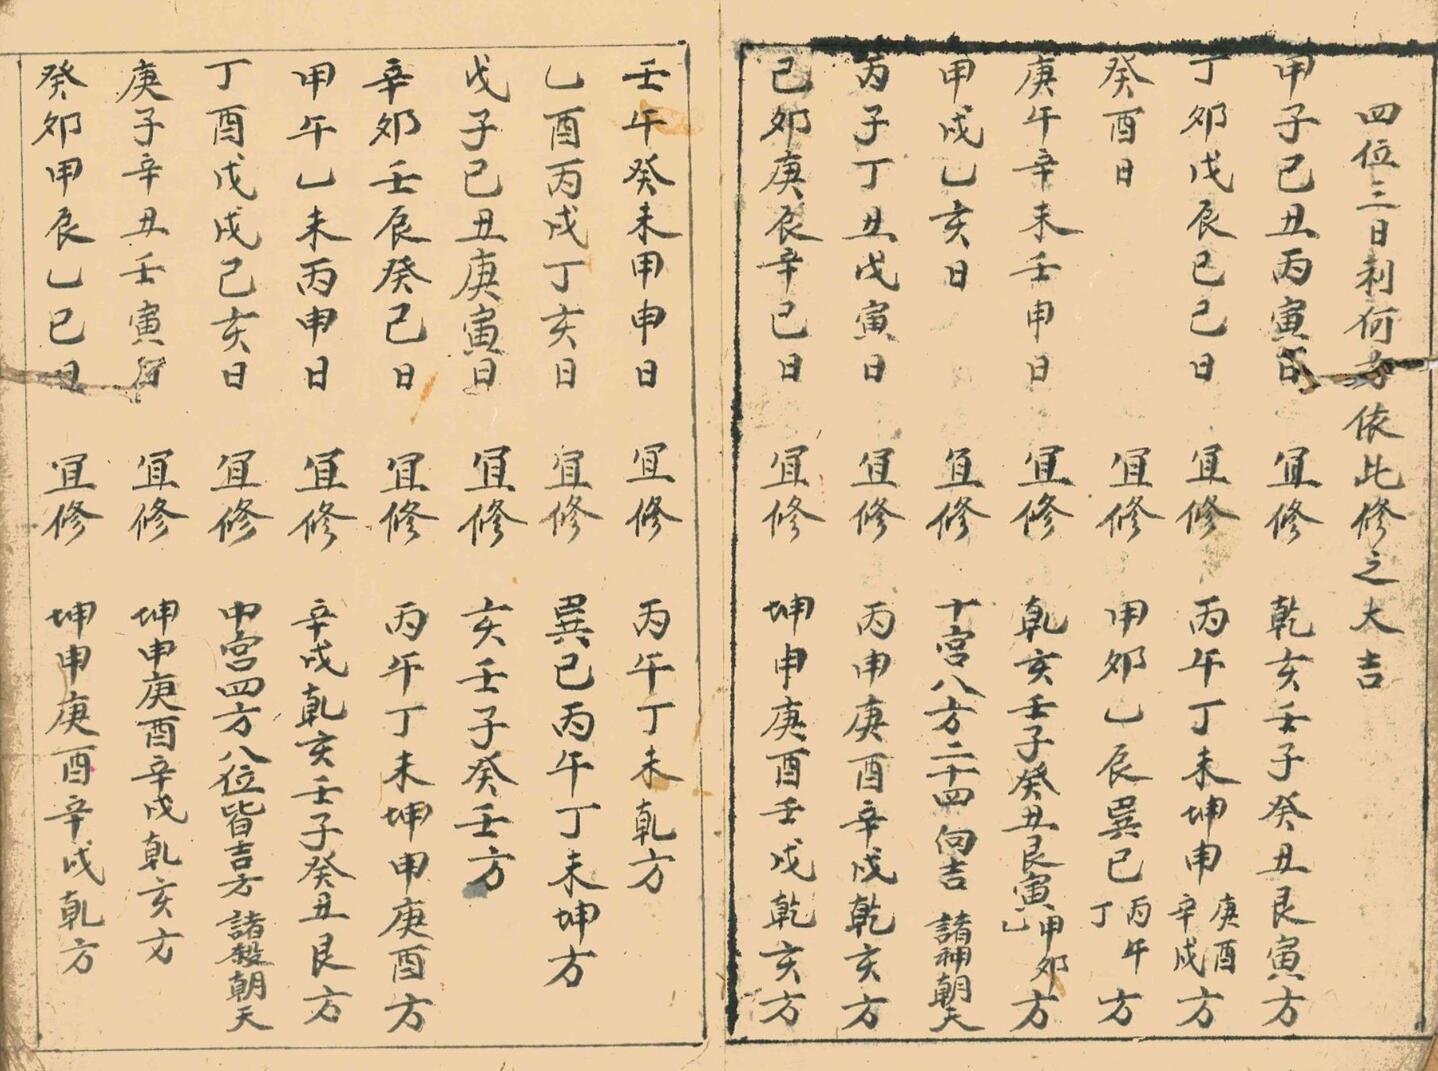 四位三日利何方依此修之大吉
甲子乙丑丙寅日 宜修 乾亥壬子癸丑艮寅方
丁卯戊辰己巳日 宜修 丙午丁未坤申庚酉辛戌方
癸酉日 宜修 甲卯乙辰巽巳丙午丁方
庚午辛未壬申日 宜修 乾亥壬子癸丑艮寅甲卯乙方
甲戌乙亥日 宜修 十宮八方二十四向吉 諸神朝天
丙子丁丑戊寅日 宜修 丙申庚酉辛戌乾亥方
己卯庚辰辛巳日 宜修 坤申庚酉壬戌乾亥方
壬午癸未甲申日 宜修 丙午丁未乾方
乙酉丙戌丁亥日 宜修 巽巳丙午丁未坤方
戊子己丑庚寅日 宜修 亥壬子癸壬方
辛卯壬辰癸巳日 宜修 丙午丁未坤申庚酉方
甲午乙未丙申日 宜修 辛戌乾亥壬子癸丑艮方
丁酉戊戌己亥日 宜修 中宮四方八位皆吉方 諸殺朝天
庚子辛丑壬寅日 宜修 坤申庚酉辛戌乾亥方
癸卯甲辰乙巳日 宜修 坤申庚酉辛戌乾方